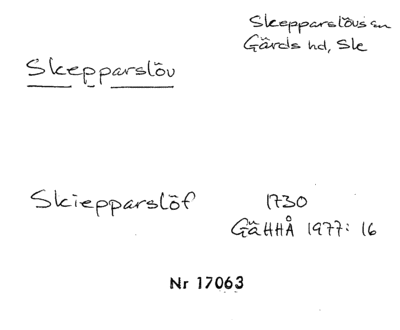 Skepparslövs sn
Gärds hd, Sk
Skepparslöv
Skiepparslöf 1730
GäHHÅ 1977: 16
Nr 17063